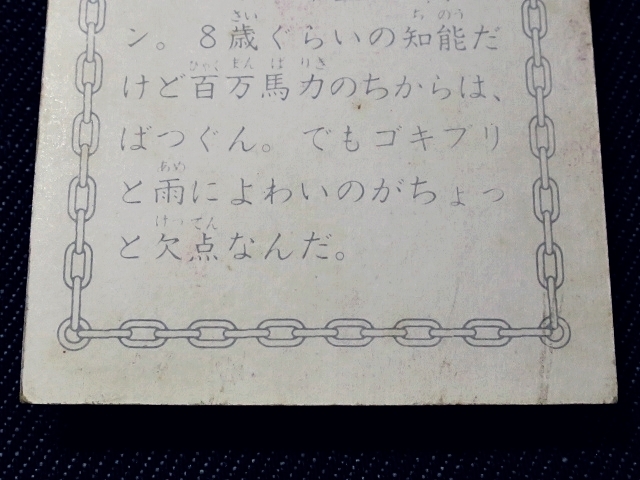 ン。8歳ぐらいの知能だ
けど百万馬力のちからは、
ばつぐん。でもゴキブリ
と雨によわいのがちょっ
と欠点なんだ。